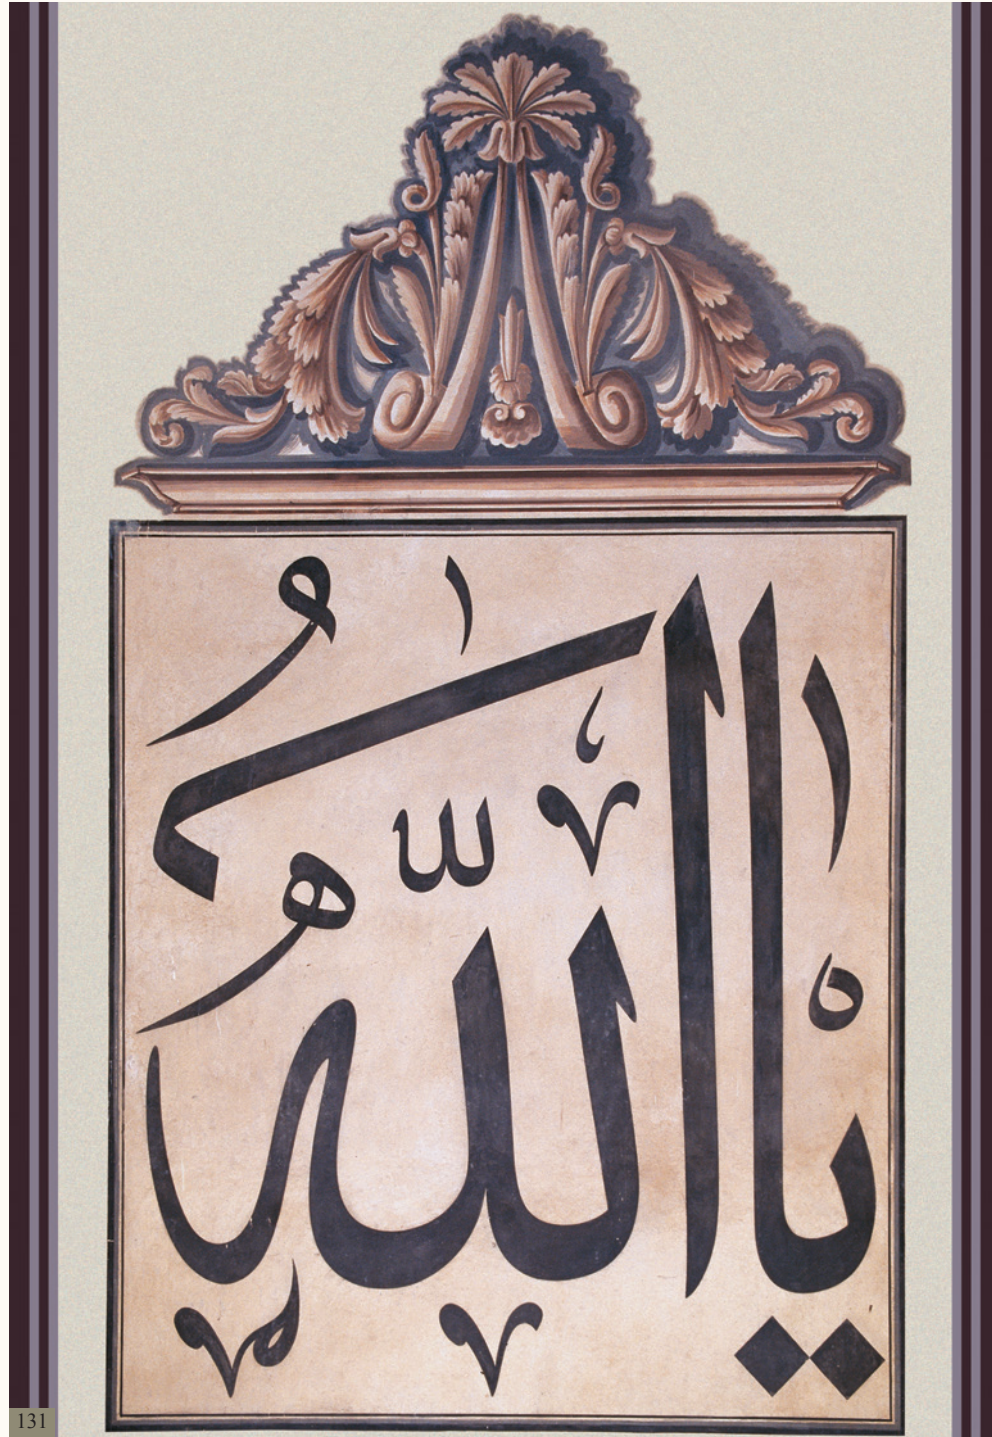 يا الله
131